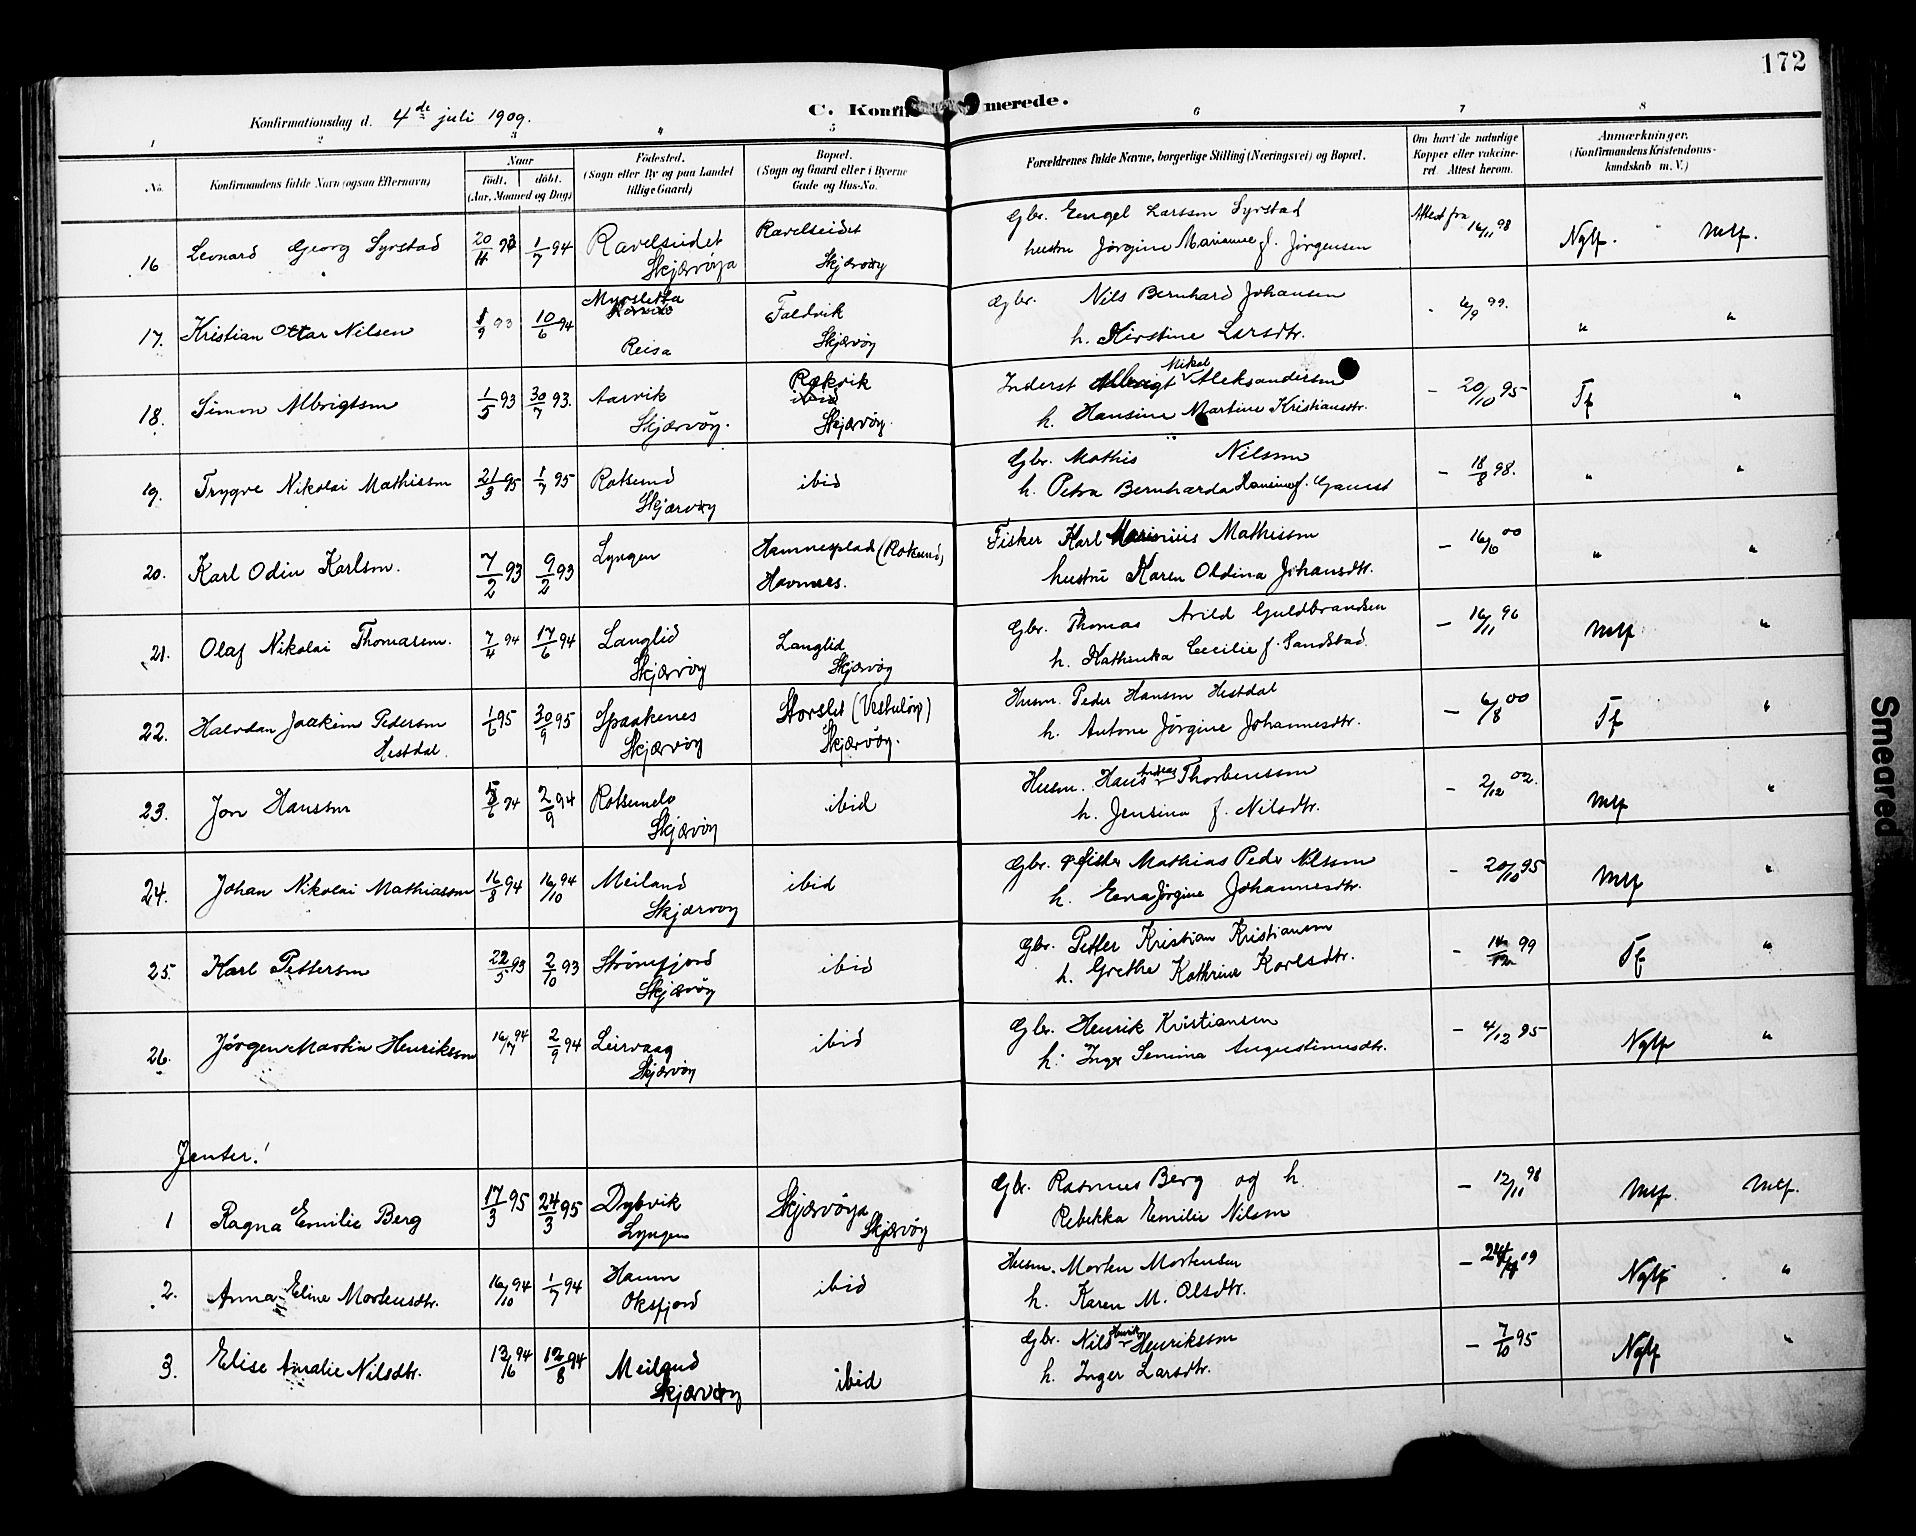 172
C. Konfirmerede.
Konfirmationsdag d. 4de juli 1909.
1 2 3 4 5 6 7 8
No. Konfirmandens fulde Navn (ogsaa Efternavn) Naar födt. döbt. (Aar, Maaned og Dag) Födested. (Sogn eller By og paa Landet tillige Gaard) Bopæl. (Sogn og Gaard eller i Byerne Gade og Hus-No. Forældrenes fulde Navne, borgerlige Stilling (Næringsvei) og Bopæl. Om havt de naturlige Kopper eller vakcineret. Attest herom. Anmærkninger. (Konfirmandens Kristendomskundskab m. V.)
16 Leonard Georg Syrstad 20/11 93 1/7 94 Ravelseidet Skjærvöya Ravelseidet Skjærvöy
Gbr. Engel Larssen Syrstad Attest fra 16/11 98 Nglf. Mlf.
hustru Jörgine Marianne f. Jörgensen
17. Kristian Ottar Nilsen 1/9 93 10/6 94 Myrsletta Reisa Taldvik Skjærvöy
Gbr. Nils Bernhard Johansen - 6/9 99. " "
h. Kirstine Larsdtr.
18. Simon Albrigtsen 1/5 93 30/7 93. Aarvik Skjærvöy. Rakvik ibid Skjærvöy.
Inderst Albrigt Mikal Aleksandersen - 20/10 95 Tf "
h. Hansine Martine Kristiansdtr.
19. Trygve Nikolai Mathissen 21/3 95 1/7 95 Rotsund Skjærvöy ibid
Gbr. Mathis Nilssen - 18/8 98. " "
h. Petra Bernharda Hansine f. Gamst
20. Karl Odin Karlsen. 7/2 93 9/2 93 Lyngen Hamneplad (Rotsund) Havnnes.
Fisker Karl Marinius Mathissen - 16/6 00 " "
hustru Karen Oldina Johansdtr.
21. Olaf Nikolai Thomassen. 7/4 94 17/6 94 Langlid Skjærvöy Langlid Skjærvöy
Gbr. Thomas Arild Guldbrandsen - 16/11 96 Mlf "
h. Kathinka Cecilie f. Sandstad.
22. Halvdan Joakim Pedersen Hestdal 1/6 95 30/9 95 Spaakenes Skjærvöy Storslet (Vestulöy) Skjærvöy.
Husm. Peder Hansen Hestdal - 6/8 00 Tf "
h. Antone Jörgine Johannesdtr.
23. Jon Hanssen 5/6 94 2/9 94 Rotsundelv Skjærvöy ibid
Husm. Hans Andreas Thorbenssen - 2/12 02. Mlf "
h. Jensina f. Nilsdtr.
24. Johan Nikolai Mathiassen 16/8 94 16/10 94 Meiland Skjærvöy ibid
Gbr. Mathias Peder Nilssen - 20/10 95 Mlf "
h. Erna Jörgine Johannesdtr.
25. Karl Pettersen 22/5 93 2/10 93 Strömfjord Skjærvöy ibid
Gbr. Petter Kristian Kristiansen - 99 Tf "
h. Grethe Kathrine Karlsdtr.
26. Jörgen Martin Henriksen 16/7 94 2/9 94 Leirvaag Skjærvöy ibid
Gbr. Henrik Kristiansen - 4/12 95 Nglf "
h. Inger Semina Augustinusdtr.
Jenter!
1 Ragna Emilie Berg 17/3 95 24/3 95 Dybvik Lyngen Skjærvöya Skjærvöy
Gbr. Rasmus Berg og h. - 12/11 98 Mlf. Mlf.
Rebekka Emilie Nilsen
2. Anna Eline Mortensdtr. 16/10 94 1/7 94 Havn Oksfjord ibid
Husm. Morten Mortensen - 09 Nglf "
h. Karen M. Olsdtr.
3. Elise Amalie Nilsdtr. 13/6 94 12/8 94 Meiland Skjærvöy ibid
Gbr. Nils Henrik Henrikssen - 7/10 95 Nglf "
h. Inger Larsdtr.
Smeared